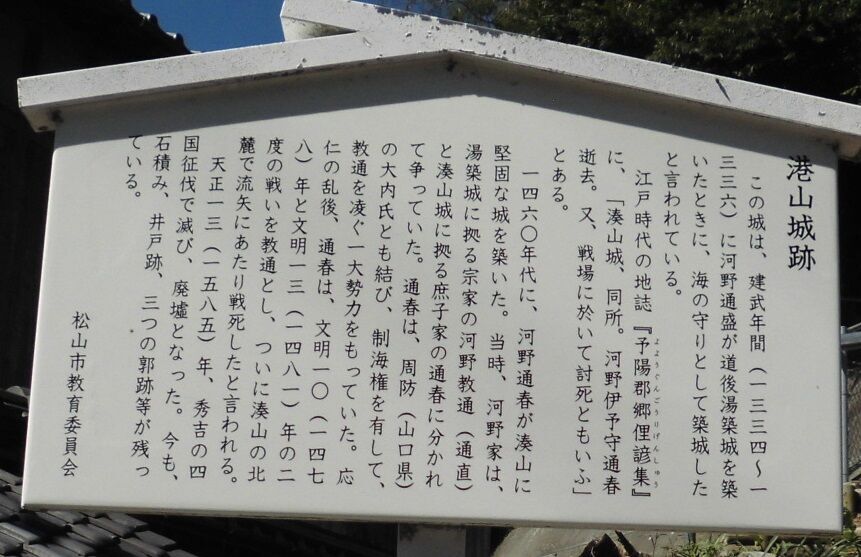 港山城跡
この城は、建武年間（一三三四～一
三三六）に河野通盛が道後湯築城を築
いたときに、海の守りとして築城した
と言われている。
江戸時代の地誌『予陽郡郷俚諺集』
よようぐんごうりげんしゅう
に、「湊山城、同所。河野伊予守通春
逝去。又、戦場に於いて討死ともいふ」
とある。
一四六〇年代に、河野通春が湊山に
堅固な城を築いた。当時、河野家は、
湯築城に拠る宗家の河野教通（通直）
と湊山城に拠る庶子家の通春に分かれ
て争っていた。通春は、周防（山口県）
の大内氏とも結び、制海権を有して、
教通を凌ぐ一大勢力をもっていた。応
仁の乱後、通春は、文明一〇（一四七
八）年と文明一三（一四八一）年の二
度の戦いを教通とし、ついに湊山の北
麓で流矢にあたり戦死したと言われる。
天正一三（一五八五）年、秀吉の四
国征伐で滅び、廃墟となった。今も、
石積み、井戸跡、三つの郭跡等が残っ
ている。
松山市教育委員会